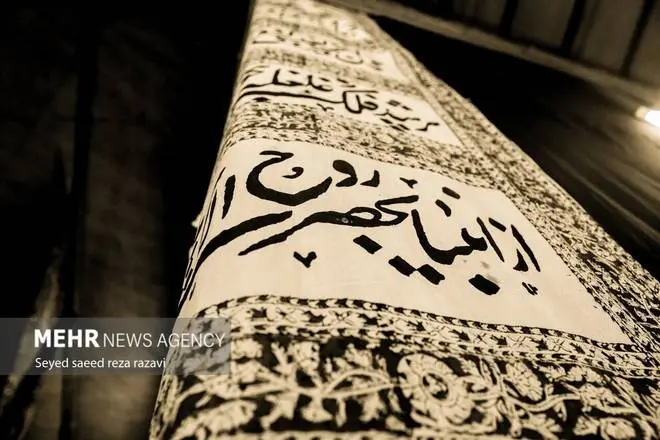 پر شد فلک ز غلغله
از انبیا بحضرت روح
MEHR NEWS AGENCY
Seyed saeed reza razavi